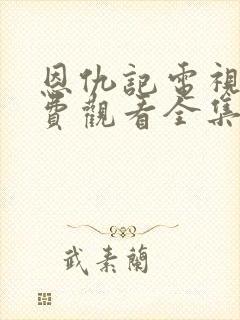 恩仇記電視
費觀看全集
武素蘭